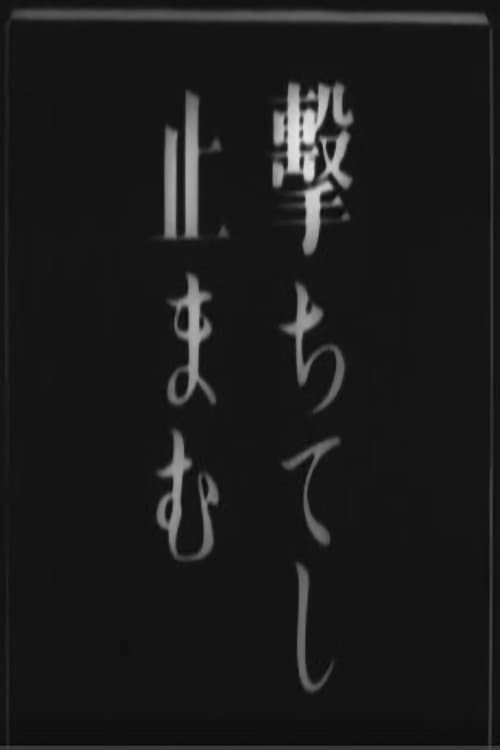 撃ちてし
止まむ